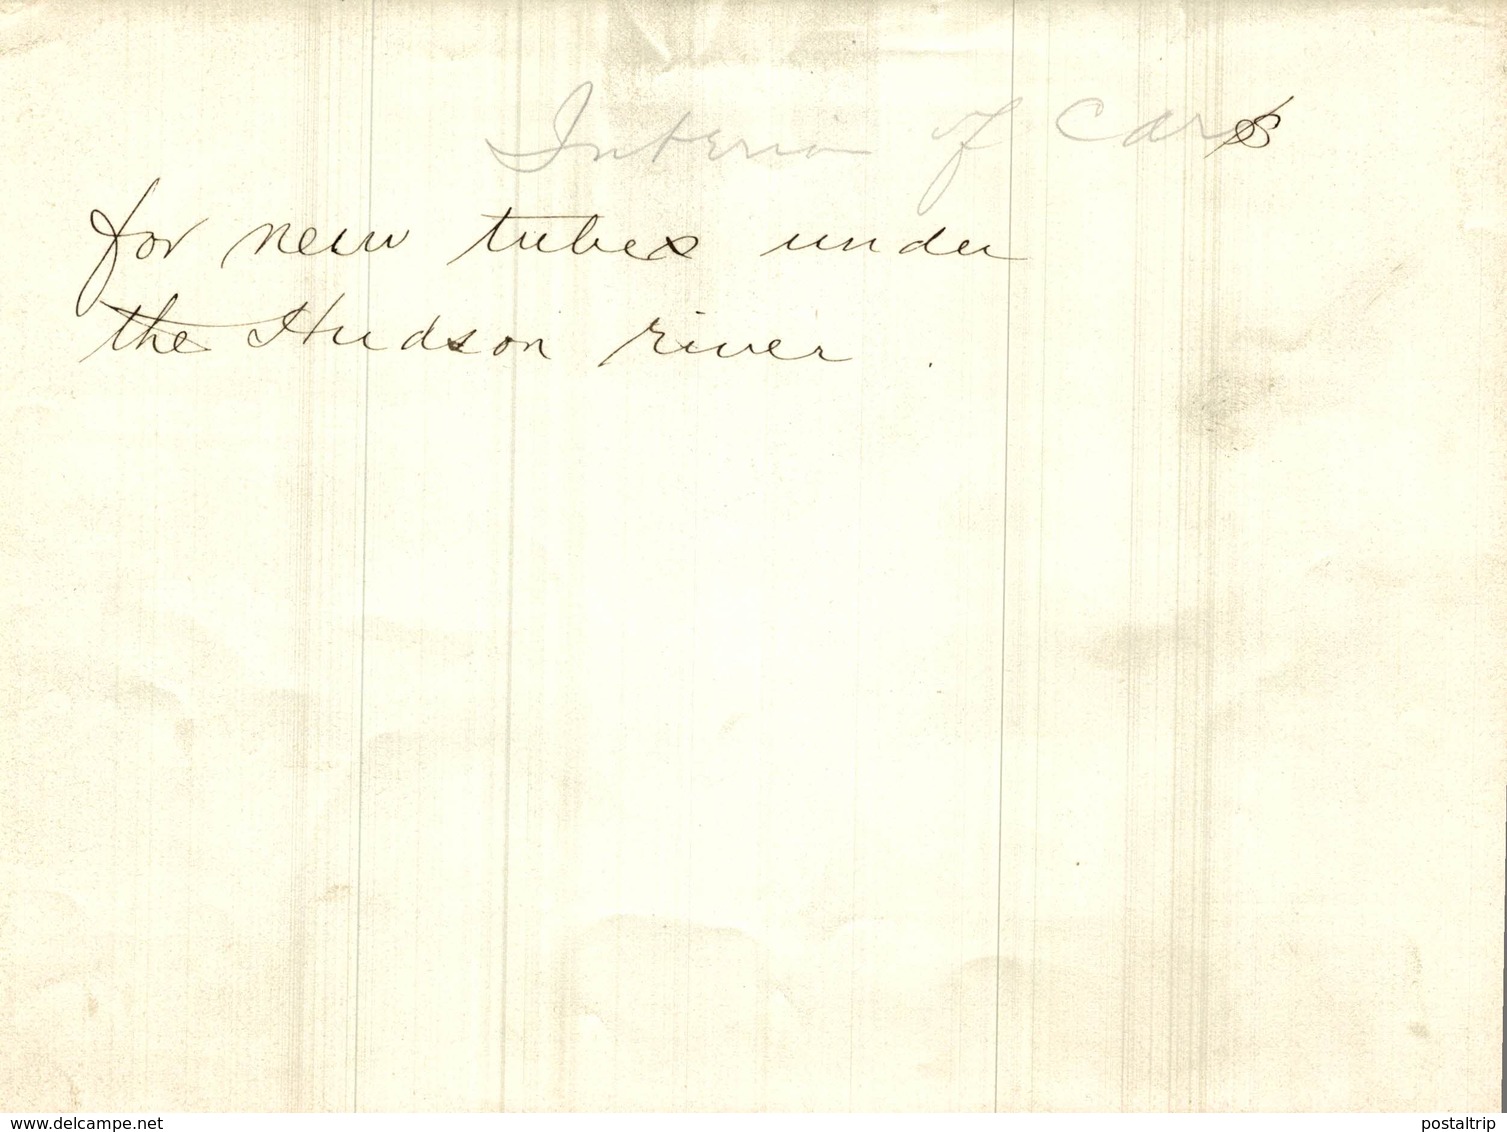 Interior of cars
for new tubes under
the Hudson river.
www.delcampe.net
postaltrip